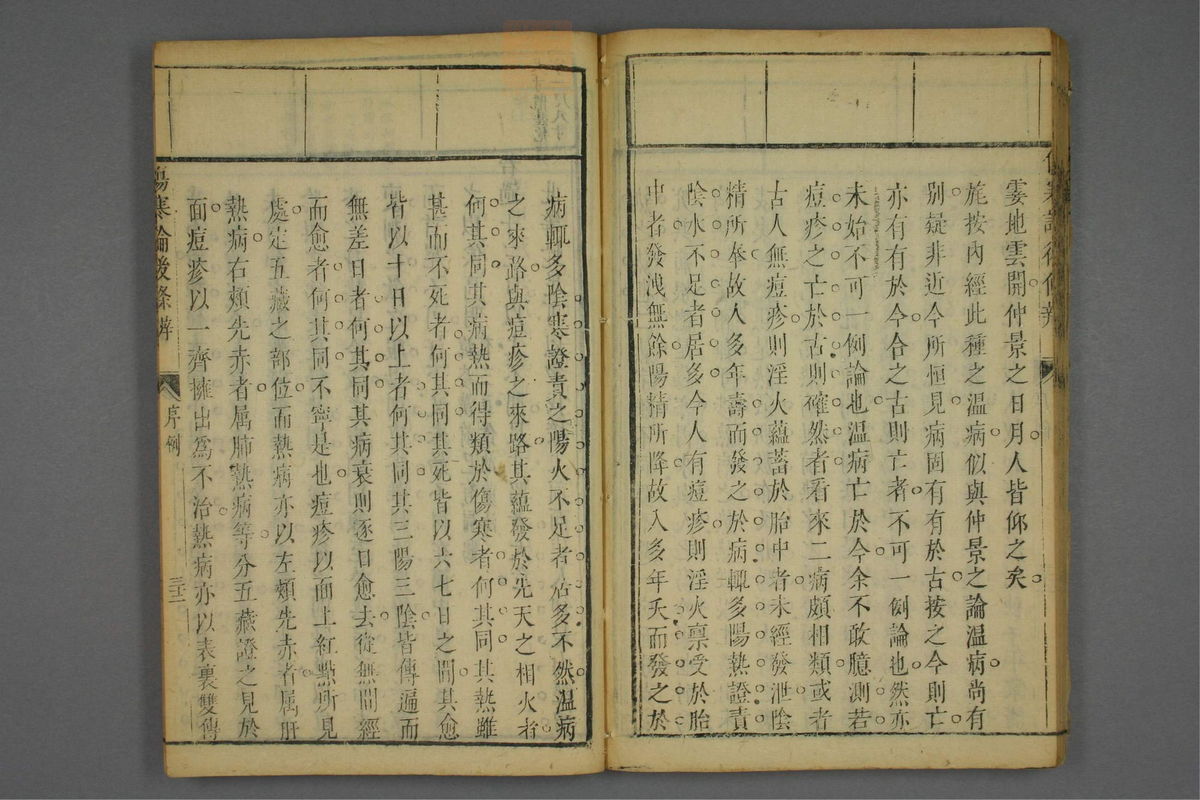 霎地雲開仲景之日月人皆仰之矣
旄按內經此種之温病似與仲景之論温病尚有
别疑非近今所恒見病固有有於古按之今則亡
亦有有於今合之古則亡者不可一例論也然亦
未始不可一例論也温病亡於今余不敢臆測若
痘疹之亡於古則確然者看來二病頗相類或者
古人無痘疹則淫火藴蓄於胎中者未經發泄陰
精所奉故人多年壽而發之於病輒多陽熱證責
陰水不足者居多今人有痘疹則淫火禀受於胎
中者發洩無餘陽精所降故人多年夭而發之於
病輒多陰寒證責之陽火不足者居多不然温病
之來路與痘疹之來路其藴發於先天之相火者
何其同其病熱而得類於傷寒者何其同其熱雖
甚而不死者何其同其死皆以六七日之間其愈
皆以十日以上者何其同其三陽三陰皆傳遍而
無差日者何其同其病衰則逐日愈去從無間經
而愈者何其同不寧是也痘疹以面上紅㸃所見
處定五藏之部位而熱病亦以左頰先赤者属肝
熱病右頰先赤者属肺熱病等分五藏證之見於
面痘疹以一齊擁出爲不治熱病亦以表裏雙傳
傷寒論後條辨
序例
三十二